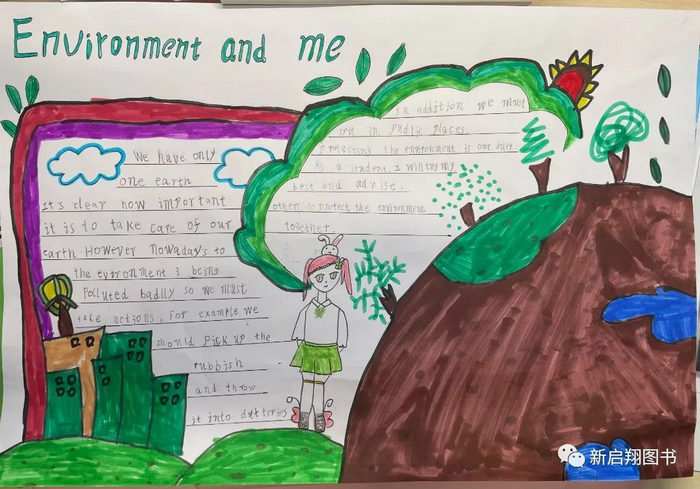 Environment and me
We have only
one earth
It's clear how important
it is to take care of our
earth However nowadays to
the evironment i being
Polluted badly so we must
take actions. For example we
should pick up the
rubbish
and throw
it into
in addition we must
in places
protecting the environment is our
a student. I will try my
best and advise.
others to protect the environment
together
新启翔图书